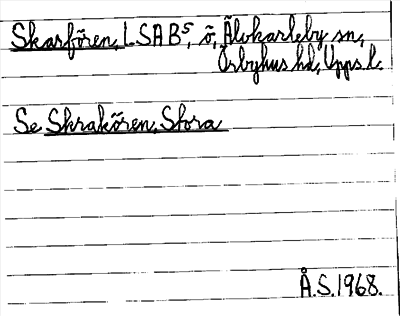 Skarfören, L. SABs, ö, Älvkarleby sn,
Örbyhus hd, Upps. l.
Se Skrakören, Stora
Å.S. 1968.